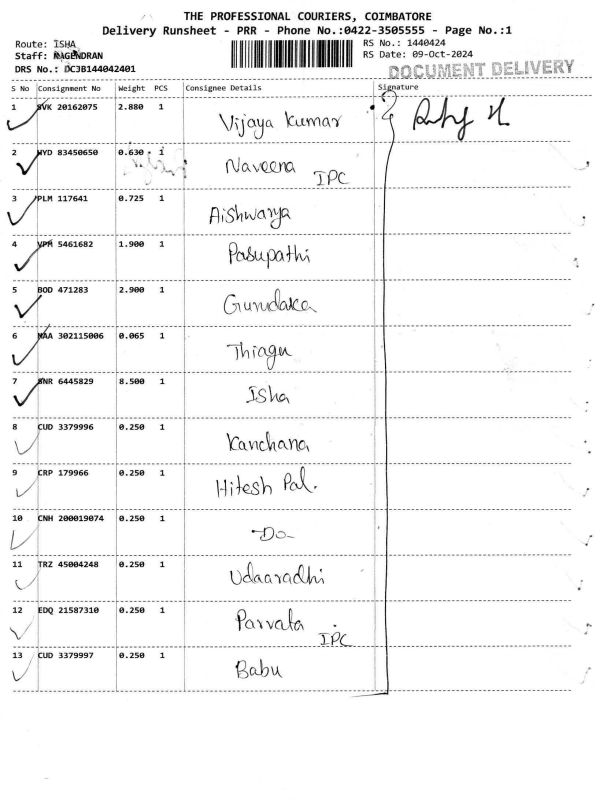 THE PROFESSIONAL COURIERS, COIMBATORE
Delivery Runsheet - PRR - Phone No.:0422-3505555 - Page No.:1
Route: ISHA
RS No.: 1440424
Staff: RAGENDRAN
RS Date: 09-Oct-2024
DRS No.: DCJB144042401
DOCUMENT DELIVERY
S No Consignment No Weight PCS Consignee Details Signature
1 VK 20162075 2.880 1 Vijaya Kumar
2 HYD 83450650 0.630 1 Naveena IPC
3 PLM 117641 0.725 1 Aishwarya
4 VPM 5461682 1.900 1 Pasupathi
5 BOD 471283 2.900 1
6 MAA 302115006 0.065 1 Thiagu
7 SNR 6445829 8.500 1 Isha
8 CUD 3379996 0.250 1 Kanchana
9 CRP 179966 0.250 1 Hitesh Pal.
10 CNH 200019074 0.250 1 -Do-
11 TRZ 45004248 0.250 1 Udaaradhi
12 EDQ 21587310 0.250 1 Parvata IPC
13 CUD 3379997 0.250 1 Babu